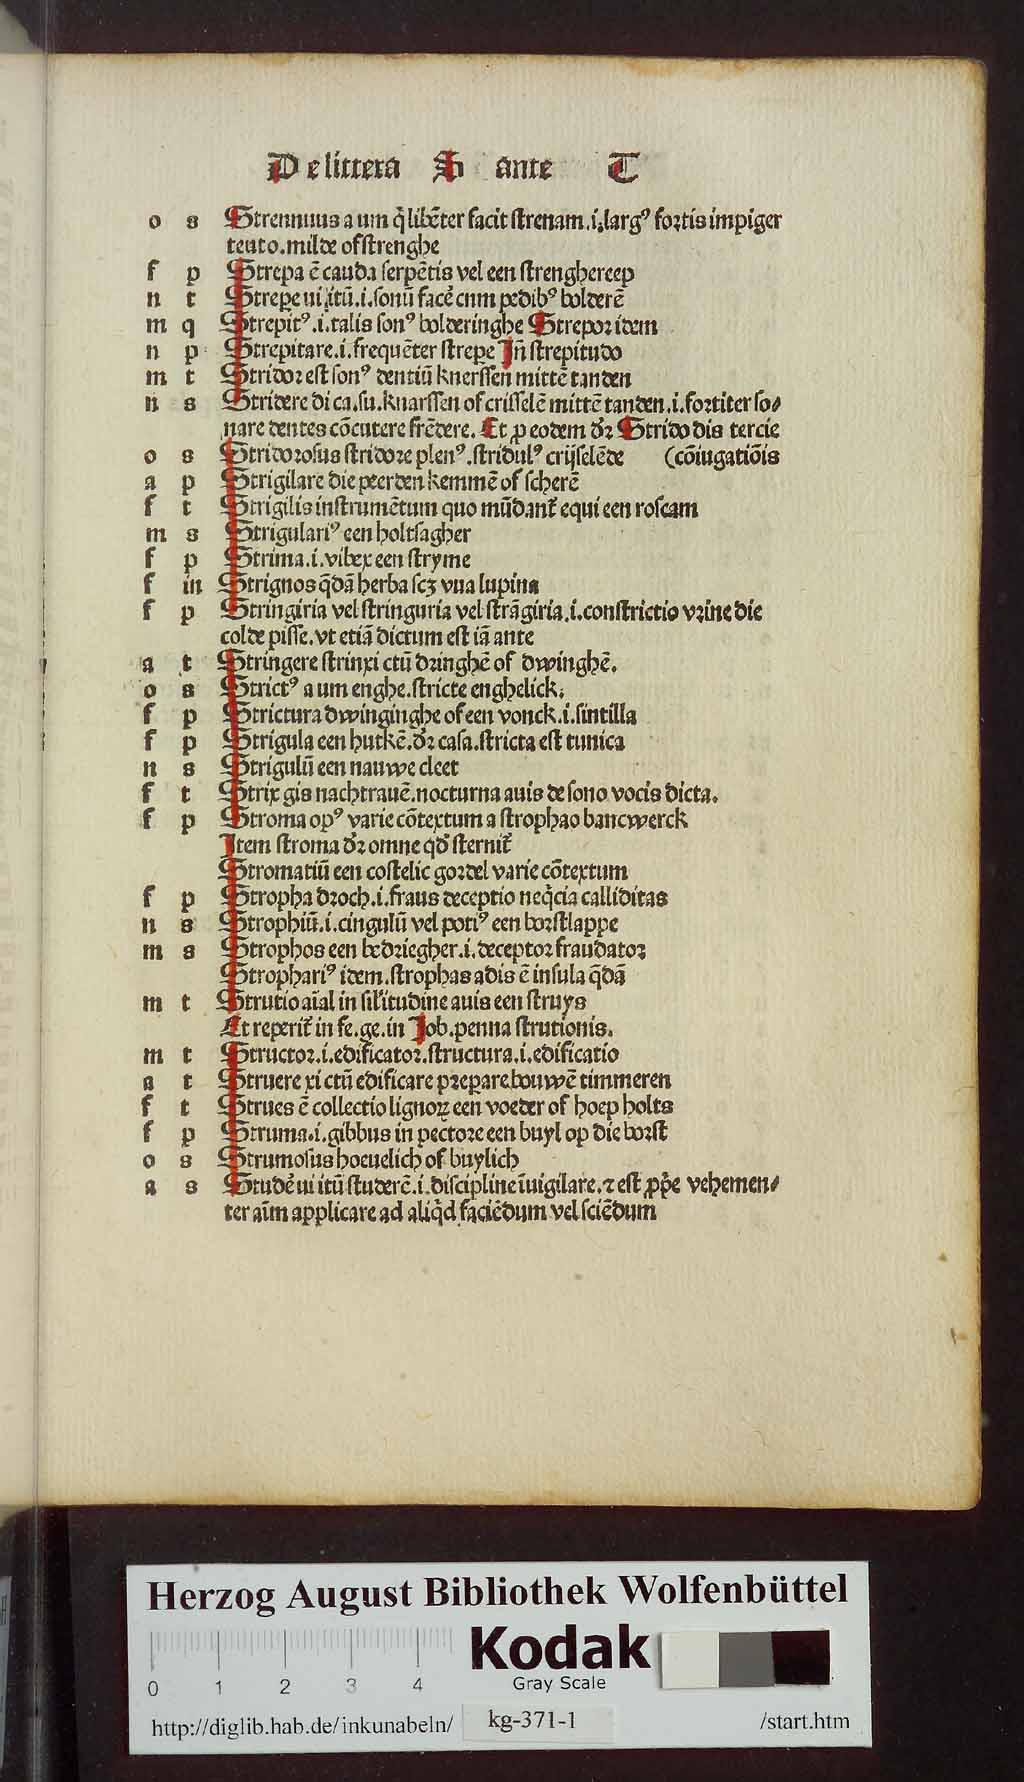 De littera S ante T
o s Strennuus a um q̄ libēter facit ſtrenam.i.largꝰ foꝛtis impiger
teuto.milde of ſtrenghe
f p Strepa ē cauda ſerpētis vel een ſtrenghereep
n t Strepe ui itū.i.ſonū facē cum pedibꝰ bolderē
m q Strepitꝰ.i.talis ſonꝰ bolderinghe Strepoꝛ idem
n p Strepitare.i.frequēter ſtrepe Jn̄ ſtrepitudo
m t Stridoꝛ eſt ſonꝰ dentiū knerſſen mittē tanden
n s Stridere di ca.ſu.knarſſen of criſſelē mittē tanden.i.foꝛtiter ſo⸗
nare dentes cōcutere frēdere. Et p eodem d̄ꝛ Strido dis tercie
o s Stridoꝛoſus ſtridoꝛe plenꝰ.ſtridulꝰ crijſelēde (cōiugatiōis
a p Strigilare die peerden kemmē of ſcherē
f t Strigilis inſtrumētum quo mūdant̄ equi een roſcam
m s Strigulariꝰ een holtſagher
f p Strima.i.vibex een ſtryme
f in Strignos q̄dā herba ſcꝫ vua lupina
f p Stringiria vel ſtringuria vel ſtrāgiria.i.conſtrictio vꝛine die
colde piſſe.vt etiā dictum eſt iā ante
a t Stringere ſtrinxi ctū dꝛinghē of dwinghē.
o s Strictꝰ a um enghe.ſtricte enghelick.
f p Strictura dwinginghe of een vonck.i.ſintilla
f p Strigula een hutkē.d̄ꝛ caſa.ſtricta eſt tunica
n s Strigulū een nauwe cleet
f t Strix gis nachtrauē.nocturna auis de ſono vocis dicta.
f p Stroma opꝰ varie cōtextum a ſtrophao bancwerck
Jtem ſtroma d̄ꝛ omne qd̄ ſternit̄
Stromatiū een coſtelic goꝛdel varie cōtextum
f p Stropha dꝛoch.i.fraus deceptio neq̄cia calliditas
n s Strophiū.i.cingulū vel potiꝰ een boꝛſtlappe
m s Strophos een bedꝛiegher.i.deceptoꝛ fraudatoꝛ
Strophariꝰ idem.ſtrophas adis ē inſula q̄dā
m t Strutio aīal in ſil'itudine auis een ſtruys
Et reperit̄ in fe.ge.in Job.penna ſtrutionis.
m t Structoꝛ.i.edificatoꝛ.ſtructura.i.edificatio
a t Struere xi ctū edificare pꝛepare bouwē timmeren
f t Strues ē collectio lignoꝝ een voeder of hoep holts
f p Struma.i.gibbus in pectoꝛe een buyl op die boꝛſt
o s Strumoſus hoeuelich of buylich
a s Studē ui itū ſtuderē.i.diſcipline īuigilare.⁊ eſt ꝓpe vehemen⸗
ter aīm applicare ad aliq̄d faciēdum vel ſciēdum
Herzog August Bibliothek Wolfenbüttel
Kodak
Gray Scale
0 1 2 3 4
http://diglib.hab.de/inkunabeln/ kg-371-1 /start.htm